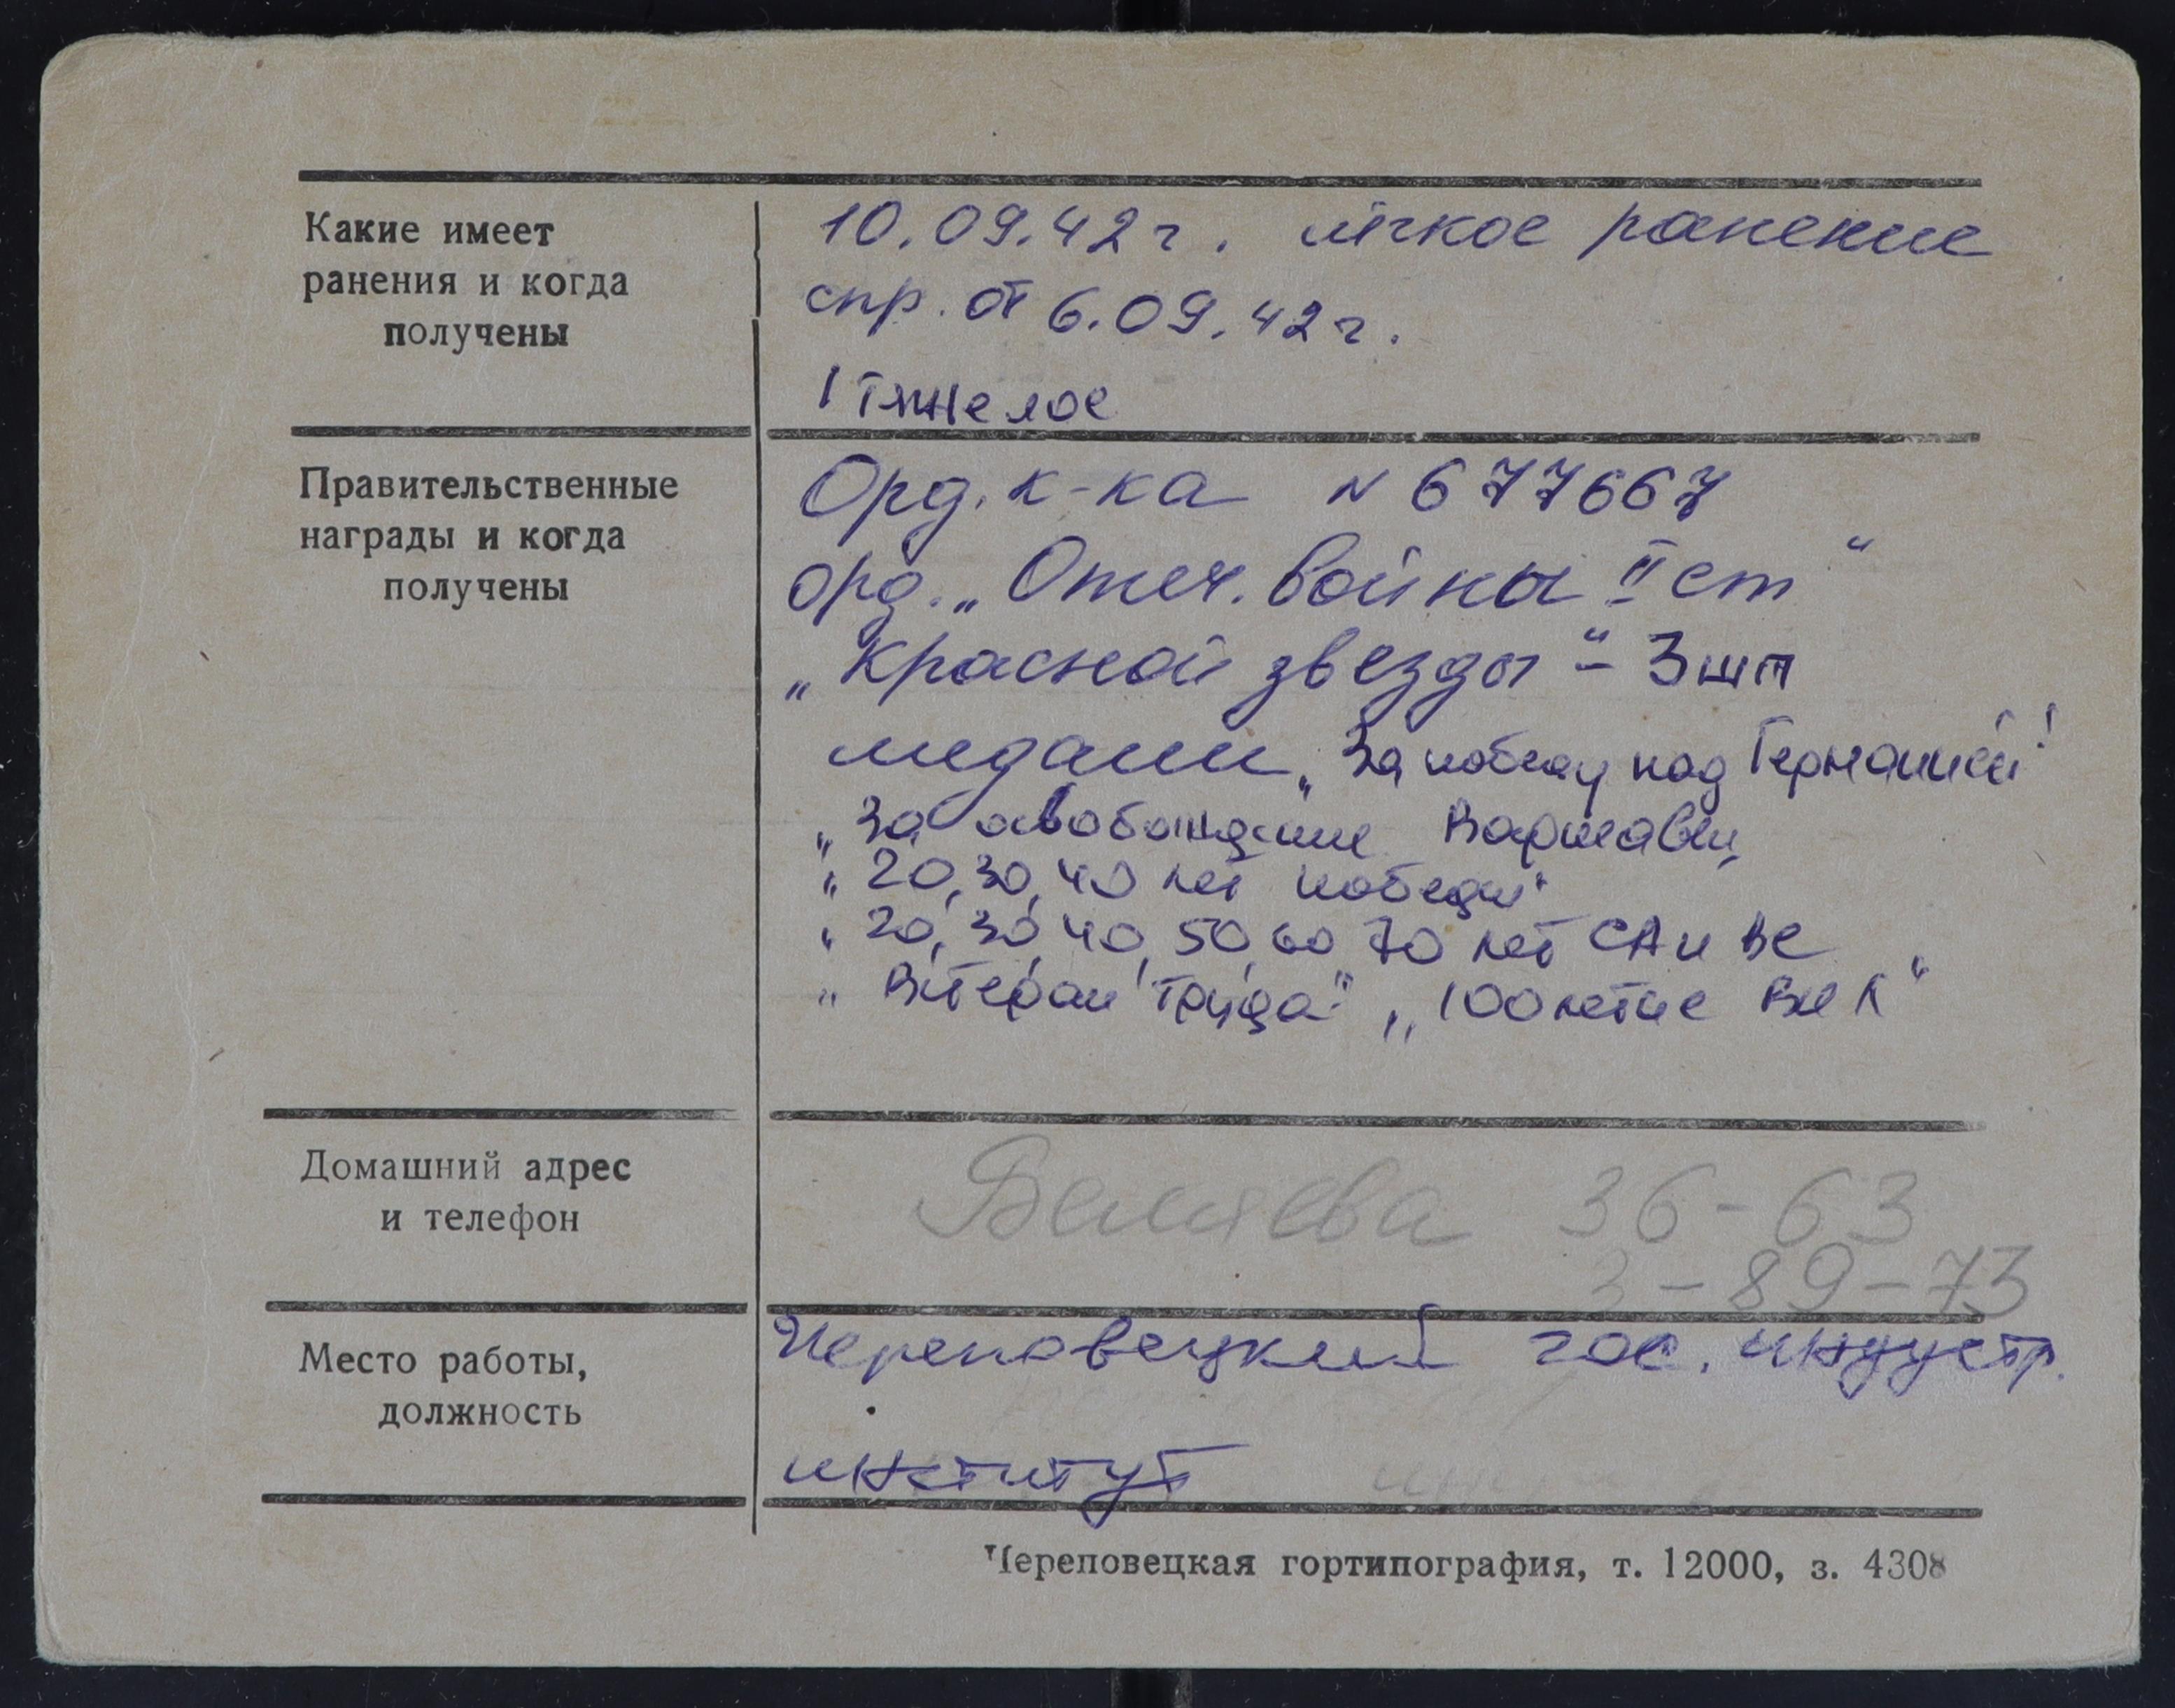 Какие имеет
ранения и когда
получены
10.09.42 г. лёгкое ранение
спр. от 6.09.42 г.
1 тяжелое
Правительственные
награды и когда
получены
Орд. к-ка N 677667
орд. „Отеч. войны II ст“
„Красной звезды“ - 3 шт
медали „За победу над Германией"
„За освобождение Варшавы„
„20, 30, 40 лет победы“
„20, 30, 40, 50, 60, 70 лет СА и ВС“
„Ветеран труда“, „100летие ВИЛ“
Домашний адрес
и телефон
Беляева 36-63
3-89-73
Место работы,
должность
Череповецкий гос. индустр.
институт
Череповецкая гортипография, т. 12000, з. 4308